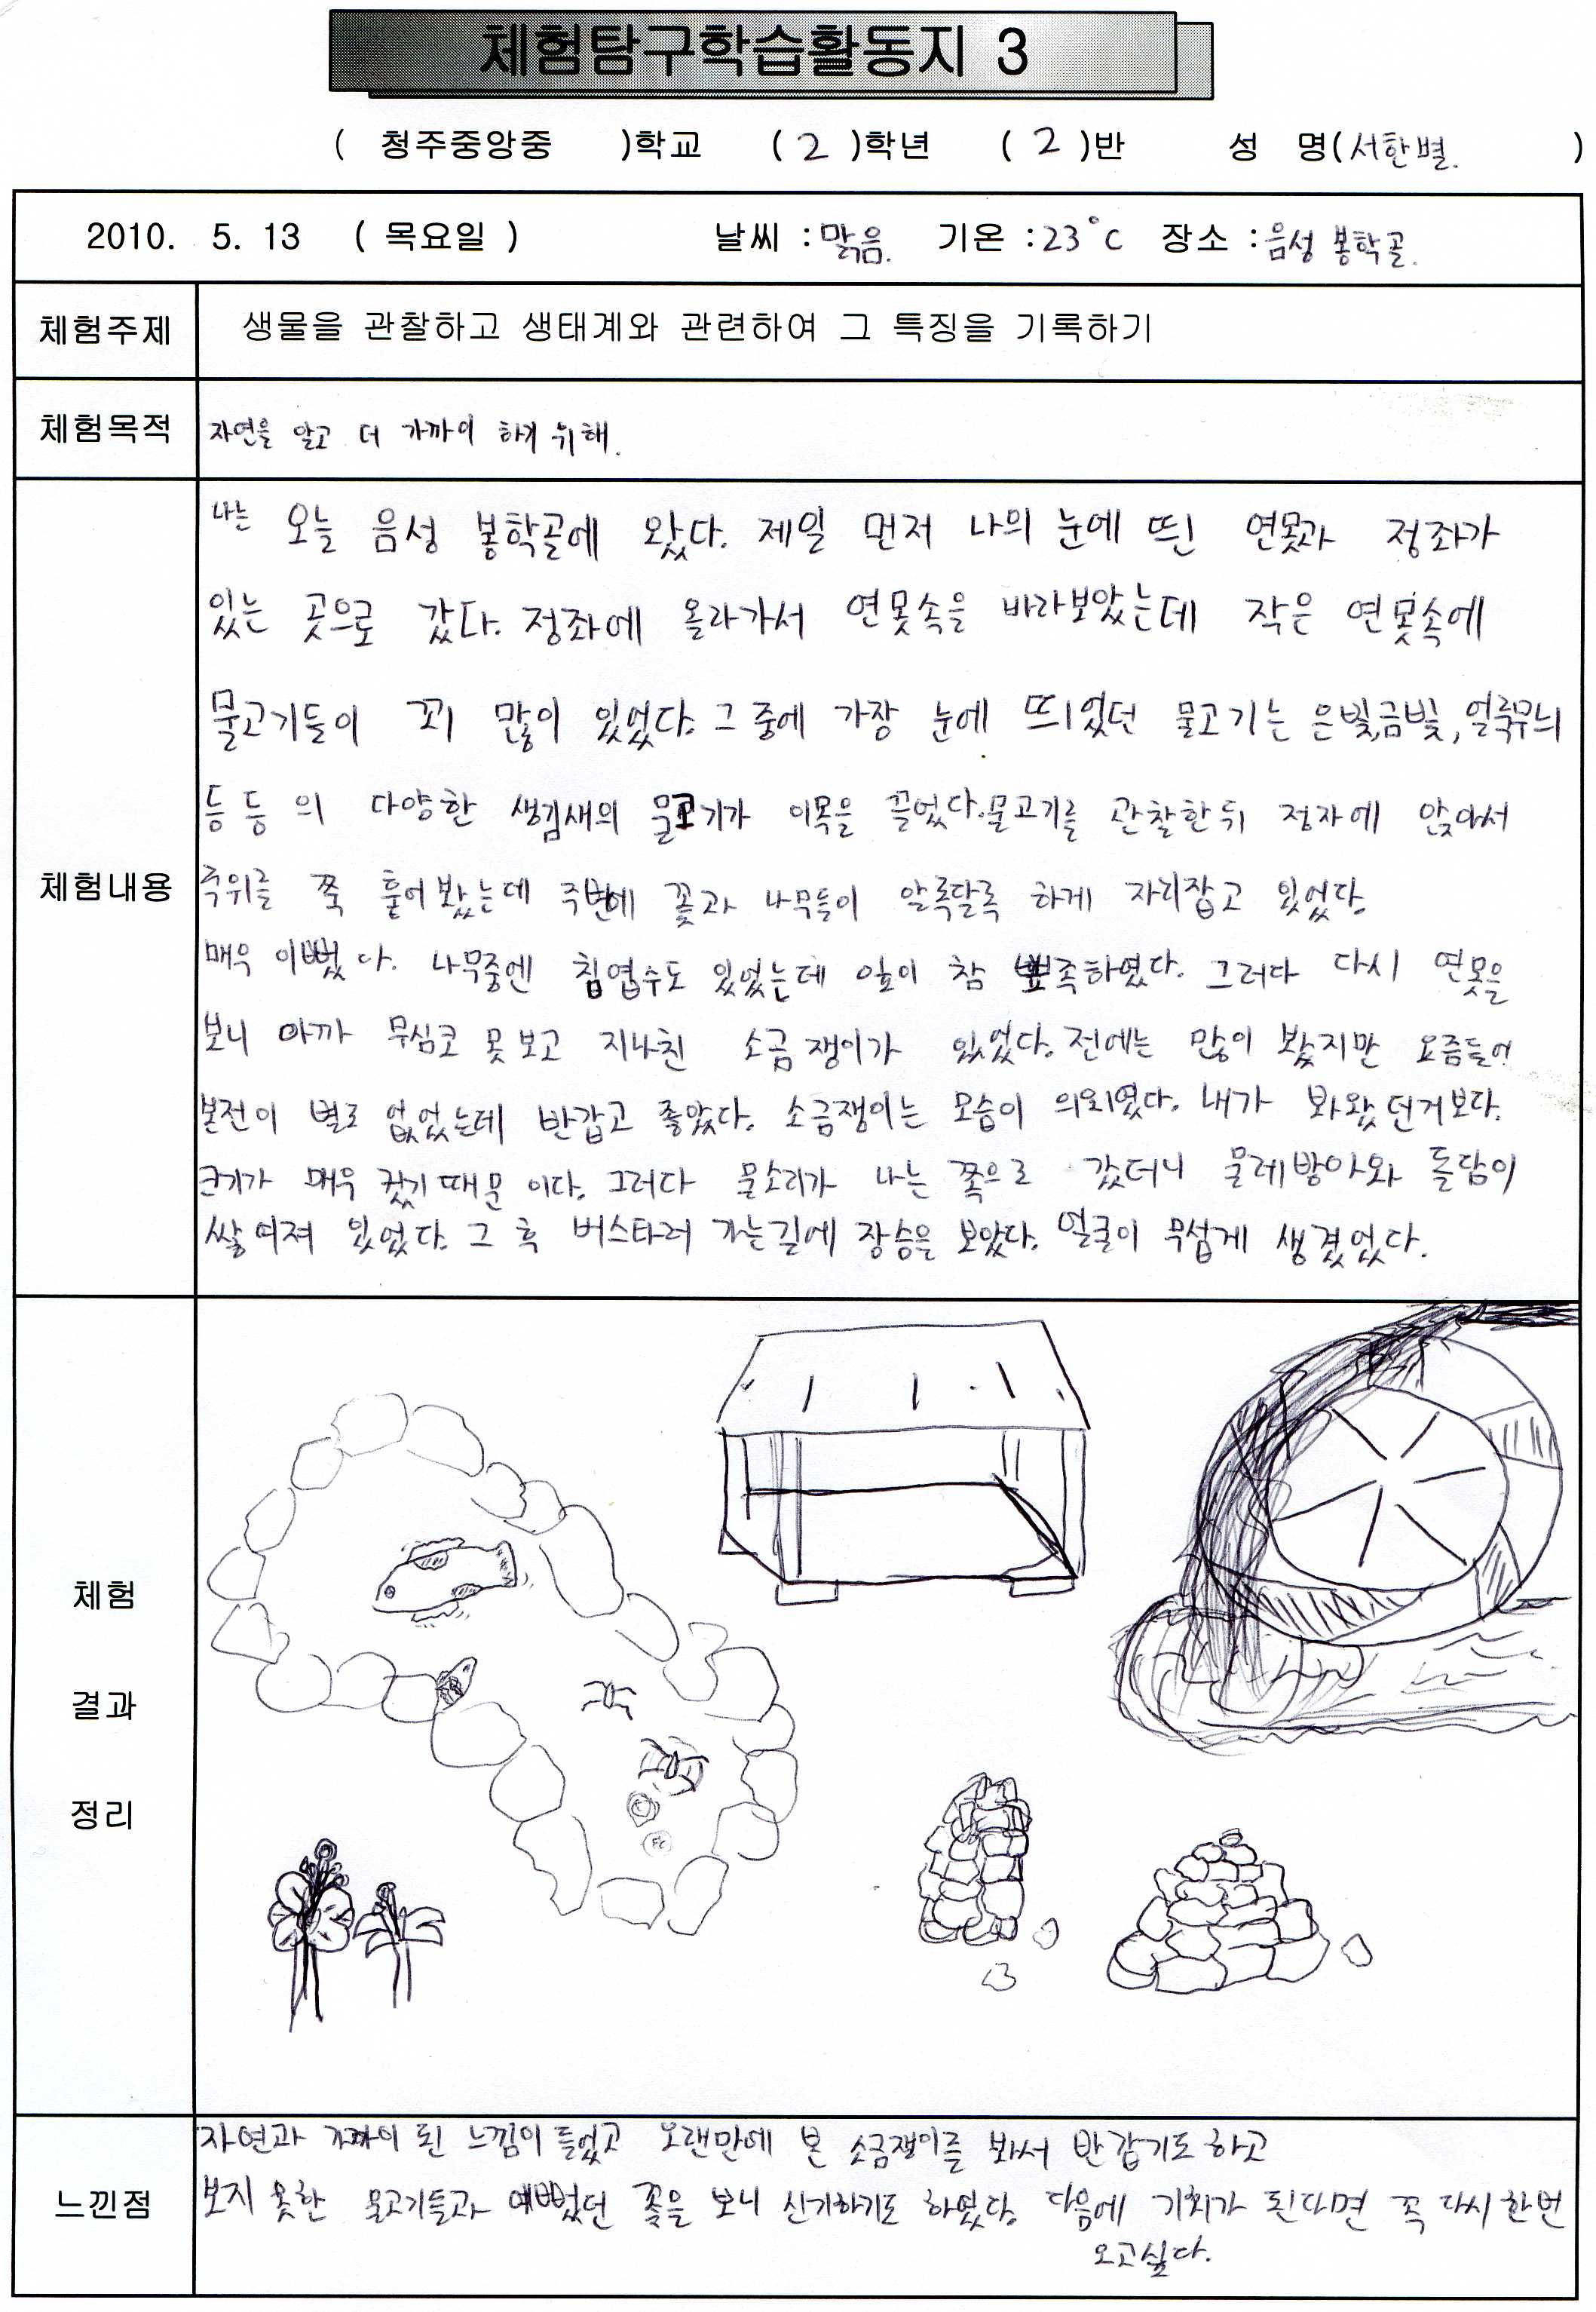 체험탐구학습활동지 3
( 청주중앙중 )학교 ( 2 )학년 ( 2 )반 성 명(서한별. )
2010. 5. 13 ( 목요일 ) 날씨 :맑음. 기온 :23°C 장소 :음성 봉학골.
체험주제 생물을 관찰하고 생태계와 관련하여 그 특징을 기록하기
체험목적 자연을 알고 더 가까이 하기 위해.
나는 오늘 음성 봉학골에 왔다. 제일 먼저 나의 눈에 띈 연못과 정좌가
있는 곳으로 갔다. 정좌에 올라가서 연못속을 바라보았는데 작은 연못속에
물고기들이 꾀 많이 있었다. 그 중에 가장 눈에 띄었던 물고기는 은빛,금빛,얼룩무늬
등 등 의 다양한 생김새의 물고기가 이목을 끌었다.물고기를 관찰한뒤 정자에 앉아서
체험내용 주위를 쭉 훑어봤는데 주변에 꽃과 나무들이 알록달록 하게 자리잡고 있었다.
매우 이뻤다. 나무중엔 침엽수도 있었는데 잎이 참 뾰족하였다. 그러다 다시 연못을
보니 아까 무심코 못보고 지나친 소금쟁이가 있었다. 전에는 많이 봤지만 요즘들어
본전이 별로 없었는데 반갑고 좋았다. 소금쟁이는 모습이 의외였다. 내가 봐왔던거보다.
크기가 매우 컸기 때문 이다. 그러다 물소리가 나는 쪽으로 갔더니 물레방아와 돌담이
쌓여져 있었다. 그 후 버스타러 가는길에 장승을 보았다. 얼굴이 무섭게 생겼었다.
체험
결과
정리
자연과 가까이 된 느낌이 들었고 오랜만에 본 소금쟁이를 봐서 반갑기도 하고
느낀점 보지 못한 물고기들과 예뻤던 꽃을 보니 신기하기도 하였다. 다음에 기회가 된다면 꼭 다시한번
오고싶다.